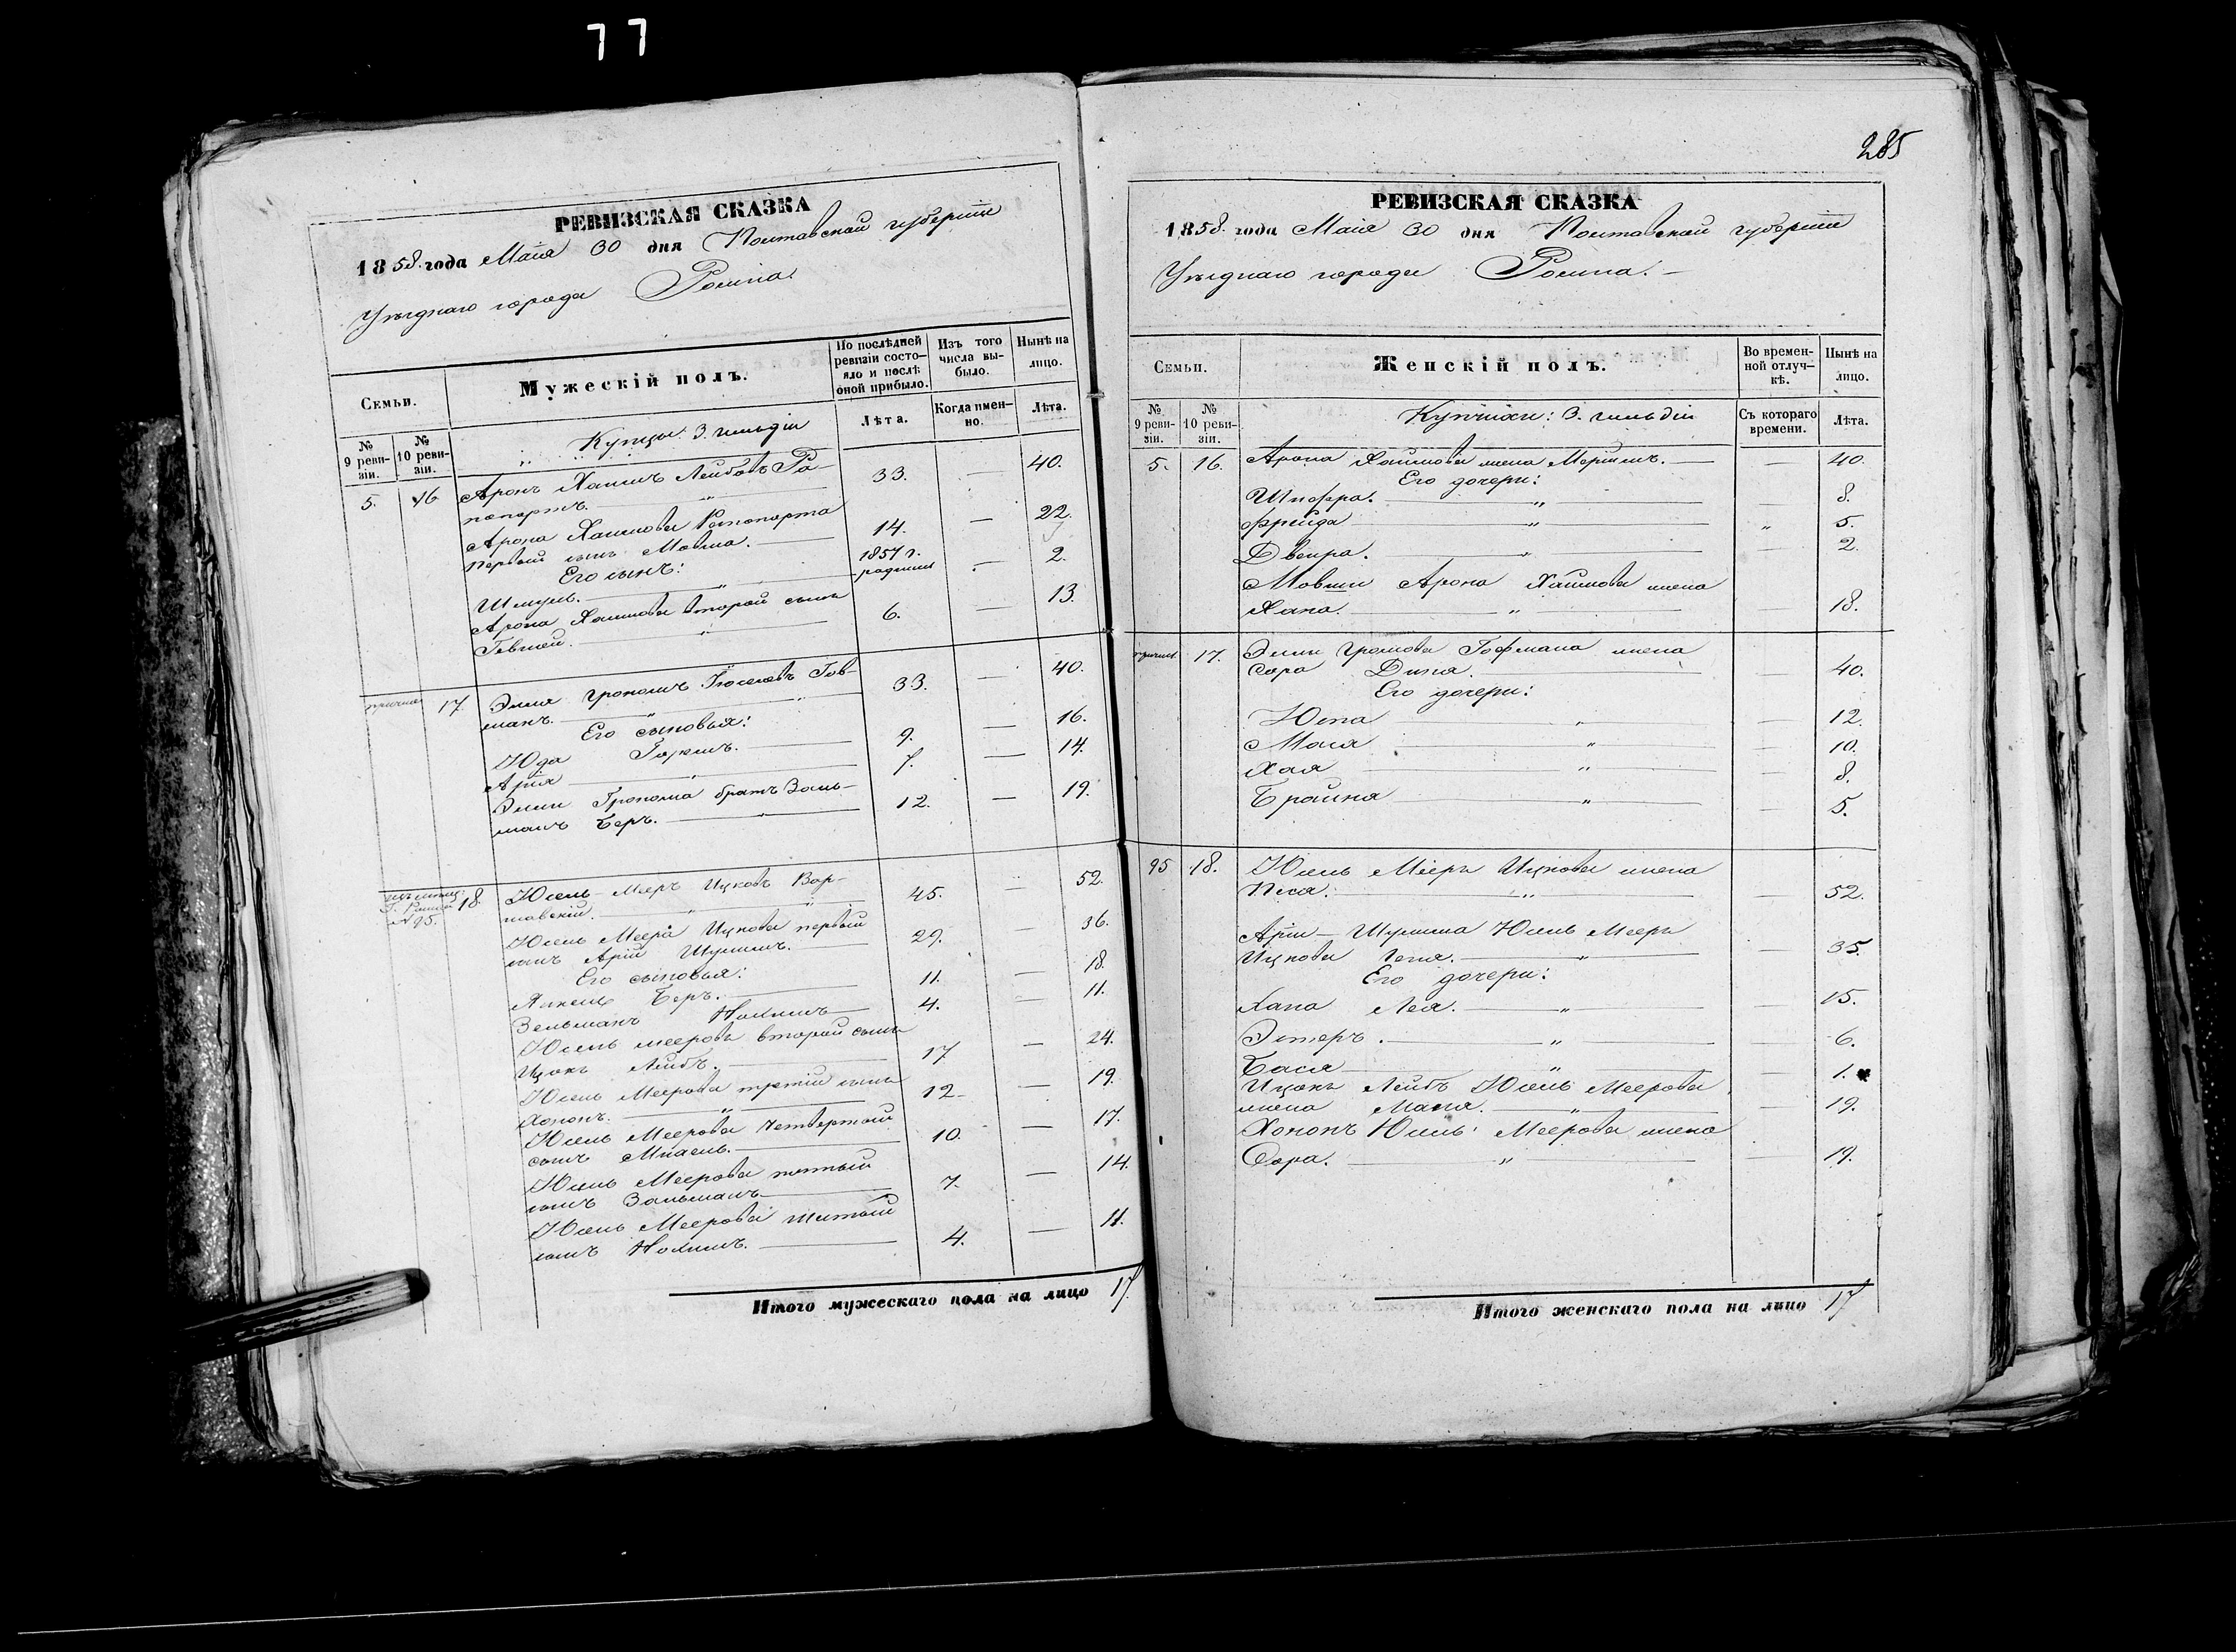 77
РЕВИЗСКАЯ СКАЗКА
1858 года Маія 30 дня Полтавской губерніи
Уѣзднаго города Ромна.
Семьи.
Мужескій полъ.
По послѣдней ревизіи состояло и послѣ оной прибыло.
Изъ того числа выбыло.
Нынѣ на лицо.
№ 9 ревизіи.
№ 10 ревизіи.
Лѣта.
Когда именно.
Лѣта.
Купцы 3. гильдіи
5. 16 Аронъ Хаимъ Лейбовъ Ра-
попортъ. 33. — 40.
Арона Хаимова Рапопорта
первый сынъ Мовша. 14. — 22.
Его сынъ: 1857 г.
Шмуль. родился — 2.
Арона Хаимова второй сынъ
Евсей. 6. — 13.
17 Элия Грономъ Іоселевъ Гоф-
манъ. 33. — 40.
Его сыновья:
Юда 9. — 16.
Арія 7. — 14.
Элии Гронома братъ Заль-
манъ Беръ. 12. — 19.
Г. Ромна
№ 95.
18 Юсель Мееръ Ицковъ Вар-
шавскій. 45. — 52.
Юсель Меера Ицкова первый
сынъ Арій Шулимъ. 29. — 36.
Его сыновья:
Янкель Беръ. 11. — 18.
Зельманъ Нохимъ 4. — 11.
Юсель Меерова второй сынъ
Ицокъ Лейбъ. 17 — 24.
Юсель Меерова третій сынъ
Хононъ. 12 — 19.
Юсель Меерова четвертый
сынъ 10. — 17.
Юсель Меерова пятый
сынъ Зальманъ 7. — 14.
Юсель Меерова шестый
сынъ Нохимъ. 4. — 11.
Итого мужескаго пола на лицо 17
285
РЕВИЗСКАЯ СКАЗКА
1858 года Маія 30 дня Полтавской губерніи
Уѣзднаго города Ромна. —
Семьи.
Женскій полъ.
Во временной отлучкѣ.
Нынѣ на лицо.
№ 9 ревизіи.
№ 10 ревизіи.
Съ котораго времени.
Лѣта.
Купчихи: 3. гильдіи
5. 16. Арона Хаимова жена Мериямъ. — 40.
Его дочери:
Шифра. — 8.
Фрейда 5.
Двейра. — 2.
Мовши Арона Хаимова жена
Хана. 18.
17. Элии Грономова Гофмана жена
Сора Дина. — 40.
Его дочери:
Юта — 12.
Мася — 10.
Хая — 8.
Брайна — 5.
95 18. Юсель Меера Ицкова жена
Песя. — 52.
Арии — Шулима Юсель Меера
Ицкова — 35.
Его дочери:
Хана Лея. — 15.
Эстеръ. — 6.
Бася — 1.
Ицокъ Лейбъ Юсель Меерова
жена — 19.
Хононъ Юсель Меерова жена
Сора. — 19.
Итого женскаго пола на лицо 17